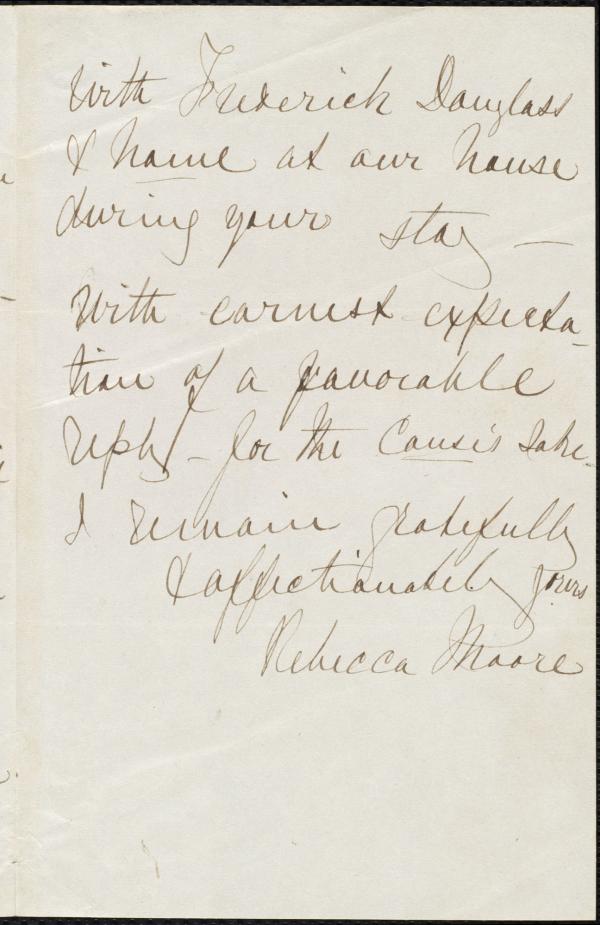 with Frederick Douglass
& home at our house
during your stay —
With earnest expecta-
tion of a favorable
reply – for the Cause's sake
I remain gratefully
& affectionately yours
Rebecca Moore